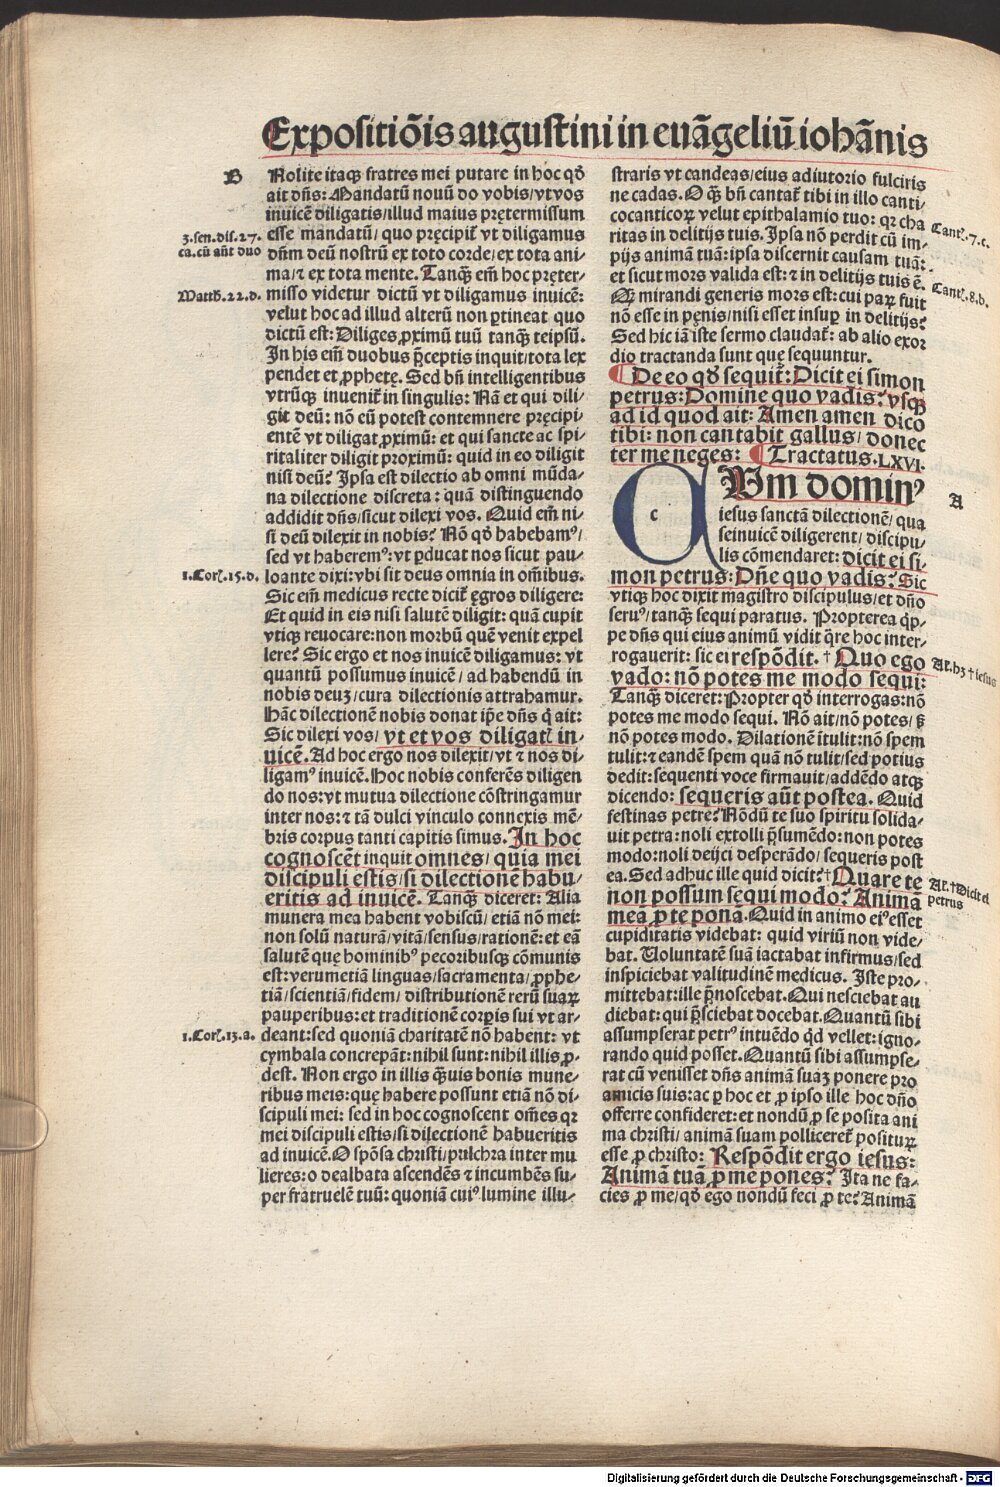 Expositiōis augustini in euāgeliū iohānis
B
Nolite itaqꝫ fratres mei putare in hoc qđ
ait dñs: Mandatū nouū do vobis/ vt vos
inuicē diligatis/ illud maius prętermissum
3.sen.dis.27.
ca.cū aūt duo
esse mandatū/ quo pręcipit᷑ vt diligamus
dñm deū nostrū ex toto corde/ ex tota ani-
ma/ ⁊ ex tota mente. Tanqꝫ em̄ hoc pręter-
Matth.22.d.
misso videtur dictū vt diligamus inuicē:
velut hoc ad illud alterū non ꝑtineat quo
dictū est: Diliges ꝓximū tuū tanqꝫ teipsū.
In his em̄ duobus p̄ceptis inquit/ tota lex
pendet et ꝓphetę. Sed bn̄ intelligentibus
vtrūqꝫ inuenit᷑ in singulis: Nā et qui dili-
git deū: nō eū potest contemnere pręcipi-
entē vt diligat ꝓximū: et qui sancte ac spi-
ritaliter diligit proximū: quid in eo diligit
nisi deū? Ipsa est dilectio ab omni mūda-
na dilectione discreta: quā distinguendo
addidit dñs/ sicut dilexi vos. Quid em̄ ni-
si deū dilexit in nobis? Nō qđ habebamꝰ/
sed vt haberemꝰ: vt ꝑducat nos sicut pau-
1.Cor.15.d.
lo ante dixi: vbi sit deus omnia in om̄ibus.
Sic em̄ medicus recte dicit᷑ ęgros diligere:
Et quid in eis nisi salutē diligit: quā cupit
vtiqꝫ reuocare: non morbū quē venit expel
lere? Sic ergo et nos inuicē diligamus: vt
quantū possumus inuicē/ ad habendū in
nobis deuꝫ/ cura dilectionis attrahamur.
Hāc dilectionē nobis donat ip̄e dñs q̇ ait:
Sic dilexi vos/ vt et vos diligat᷑ in-
uicē. Ad hoc ergo nos dilexit/ vt ⁊ nos di-
ligamꝰ inuicē. Hoc nobis conferēs diligen
do nos: vt mutua dilectione cōstringamur
inter nos: ⁊ tā dulci vinculo connexis mē-
bris corpus tanti capitis simus. In hoc
cognoscēt inquit omnes/ quia mei
discipuli estis/ si dilectionē habu-
eritis ad inuicē. Tanqꝫ diceret: Alia
munera mea habent vobiscū/ etiā nō mei:
non solū naturā/ vitā/ sensus/ rationē: et eā
salutē que hominibꝰ pecoribusqꝫ cōmunis
est: verumetiā linguas/ sacramenta/ ꝓphe-
tiā/ scientiā/ fidem/ distributionē rerū suaꝝ
pauperibus: et traditionē corꝑis sui vt ar-
1.Cor.13.a.
deant: sed quoniā charitatē nō habent: vt
cymbala concrepāt: nihil sunt: nihil illis ꝓ-
dest. Non ergo in illis qꝫuis bonis mune-
ribus meis: que habere possunt etiā nō di-
scipuli mei: sed in hoc cognoscent om̄es qꝛ
mei discipuli estis/ si dilectionē habueritis
ad inuicē. O spōsa christi/ pulchra inter mu
lieres: o dealbata ascendēs ⁊ incumbēs su-
per fratruelē tuū: quoniā cuiꝰ lumine illu-
straris vt candeas/ eius adiutorio fulciris
ne cadas. O qꝫ bn̄ cantat᷑ tibi in illo canti-
co canticoꝝ velut epithalamio tuo: qꝛ cha
Cant᷑.7.c.
ritas in delitijs tuis. Ipsa nō perdit cū im-
pijs animā tuā: ipsa discernit causam tuā:
et sicut mors valida est: ⁊ in delitijs tuis ē.
Cant᷑.8.b.
Qꝫ mirandi generis mors est: cui paꝝ fuit
nō esse in pęnis/ nisi esset insuꝑ in delitijs?
Sed hic iā iste sermo claudat᷑: ab alio exor
dio tractanda sunt que sequuntur.
¶ De eo qđ sequit᷑: Dicit ei simon
petrus: Domine quo vadis? vsqꝫ
ad id quod ait: Amen amen dico
tibi: non cantabit gallus/ donec
ter me neges: ¶ Tractatus.LXVI.
A
CUm dominꝰ
iesus sanctā dilectionē/ qua
seinuicē diligerent/ discipu-
lis cōmendaret: dicit ei si-
mon petrus: Dñe quo vadis? Sic
vtiqꝫ hoc dixit magistro discipulus/ et dño
seruꝰ/ tanqꝫ sequi paratus. Propterea q̇p-
pe dñs qui eius animū vidit q̄re hoc inter-
rogauerit: sic ei respōdit. † Quo ego
At.hꝫ † iesus
vado: nō potes me modo sequi:
Tanqꝫ diceret: Propter qđ interrogas: nō
potes me modo sequi. Nō ait/ nō potes/ ꝫ
nō potes modo. Dilationē ītulit: nō spem
tulit: ⁊ eandē spem quā nō tulit/ sed potius
dedit: sequenti voce firmauit/ addēdo atqꝫ
dicendo: sequeris aūt postea. Quid
festinas petre? Nōdū te suo spiritu solida-
uit petra: noli extolli p̄sumēdo: non potes
modo: noli deijci desperādo/ sequeris post
ea. Sed adhuc ille quid dicit? † Quare te
At.† Dicit ei
petrus
non possum sequi modo? Animā
meā ꝓ te ponā. Quid in animo eiꝰ esset
cupiditatis videbat: quid viriū non vide-
bat. Uoluntatē suā iactabat infirmus/ sed
inspiciebat valitudinē medicus. Iste pro-
mittebat: ille p̄noscebat. Qui nesciebat au
diebat: qui p̄sciebat docebat. Quantū sibi
assumpserat petrꝰ intuēdo qd vellet: igno-
rando quid posset. Quantū sibi assumpse-
rat cū venisset dñs animā suaꝫ ponere pro
amicis suis: ac ꝑ hoc et ꝓ ipso ille hoc dño
offerre confideret: et nondū ꝓ se posita ani
ma christi/ animā suam polliceret᷑ posituꝝ
esse ꝓ christo: Respōdit ergo iesus:
Animā tuā ꝓ me pones? Ita ne fa-
cies ꝓ me/ qđ ego nondū feci ꝓ te? Animā
Digitalisierung gefördert durch die Deutsche Forschungsgemeinschaft - DFG